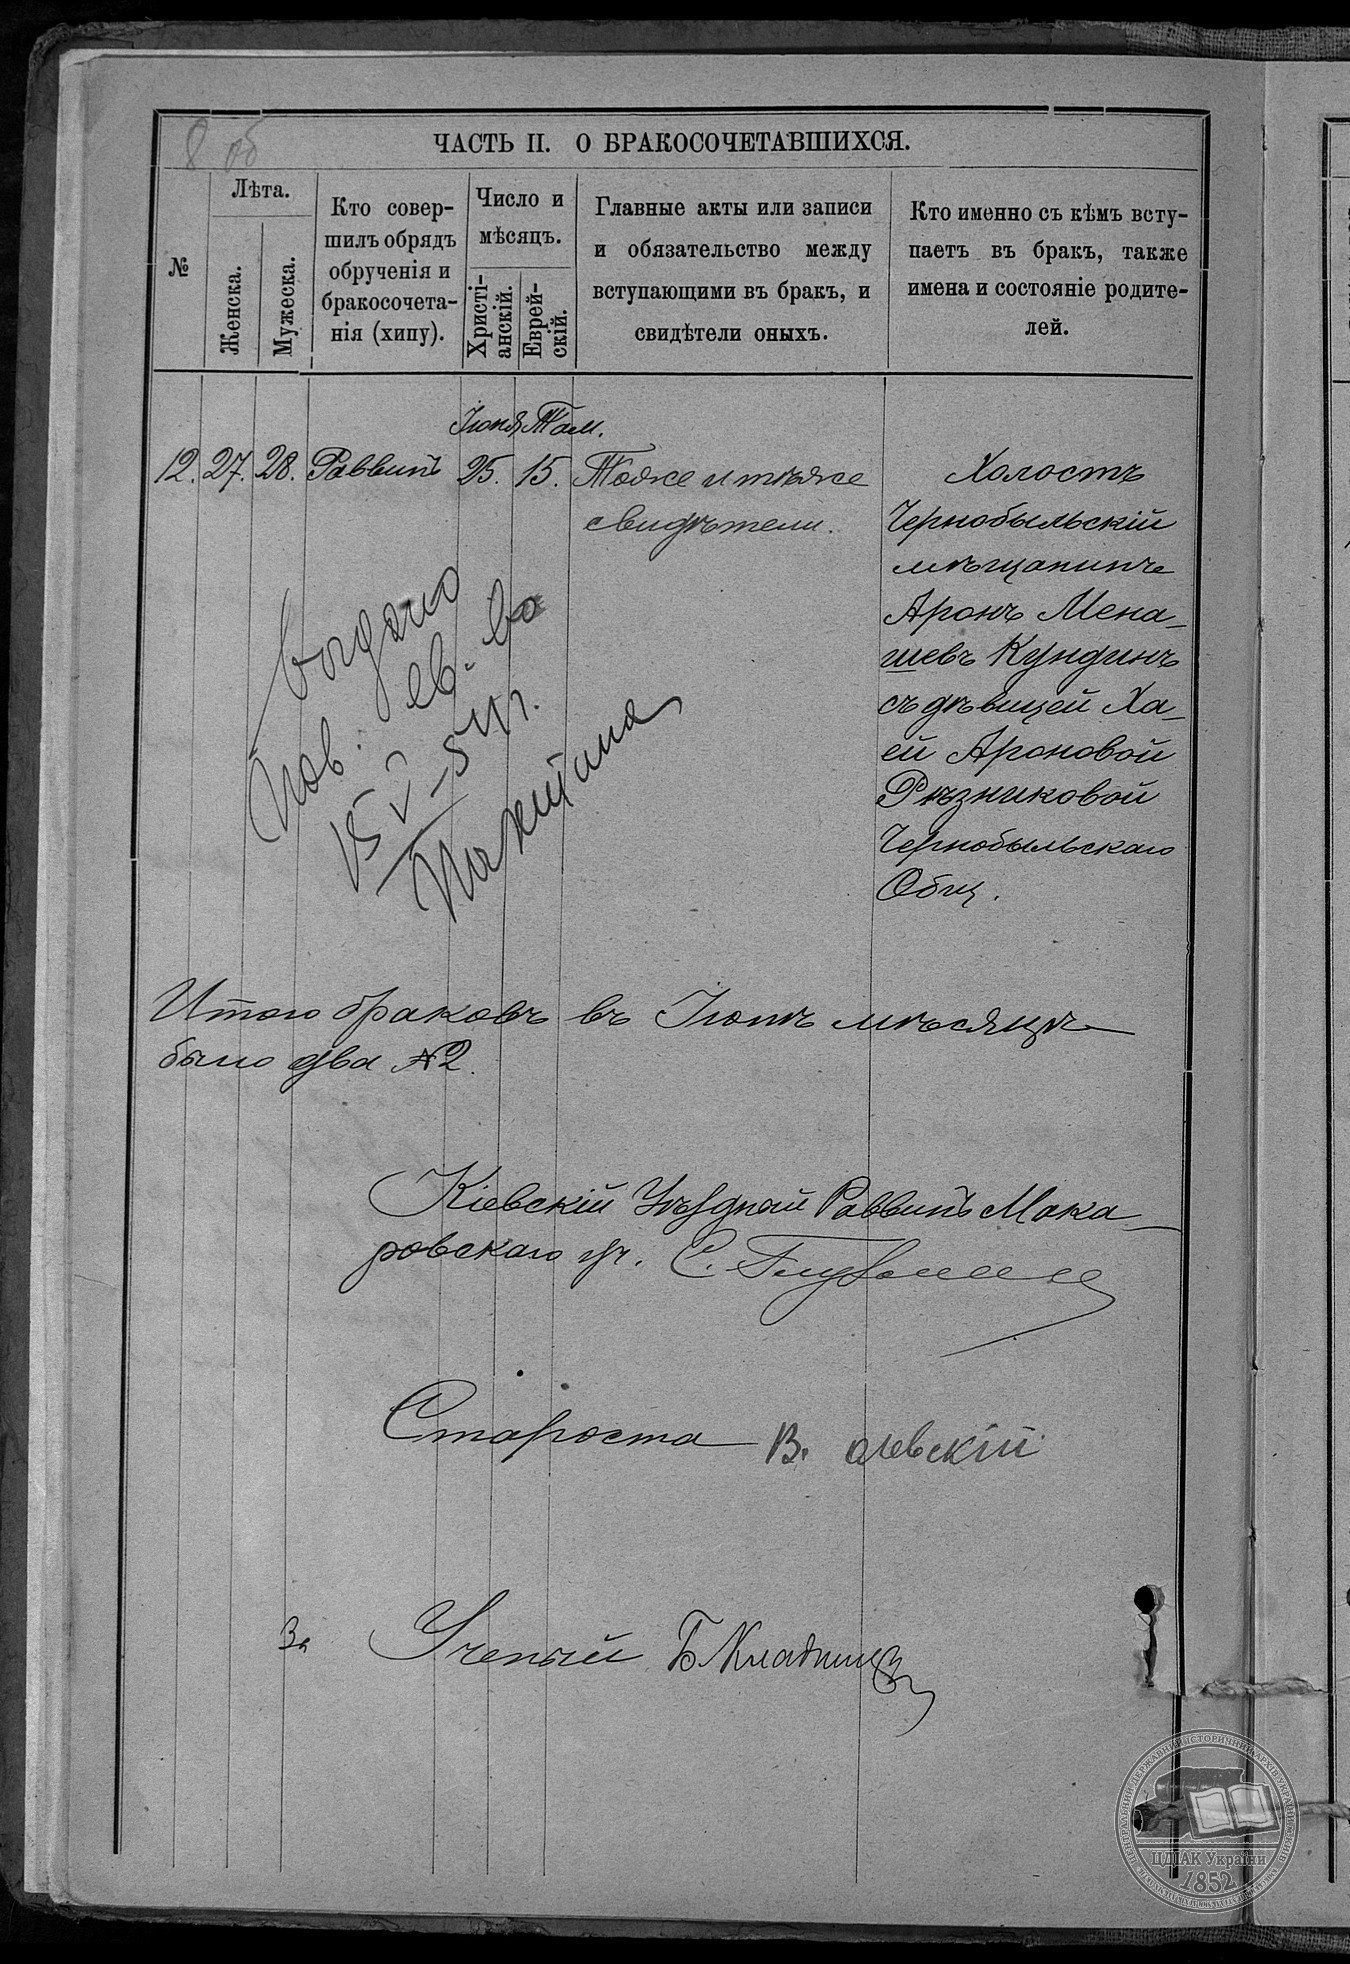 8 об
ЧАСТЬ II. О БРАКОСОЧЕТАВШИХСЯ.
№
Лѣта.
Женска.
Мужеска.
Кто совер-
шилъ обрядъ
обрученія и
бракосочета-
нія (хипу).
Число и
мѣсяцъ.
Христі-
анскій.
Еврей-
скій.
Главные акты или записи
и обязательство между
вступающими въ бракъ, и
свидѣтели оныхъ.
Кто именно съ кѣмъ всту-
паетъ въ бракъ, также
имена и состояніе родите-
лей.
Іюня Там.
12. 27. 28. Раввинъ 25. 15. Тоже и тѣже
свидѣтели.
Холостъ
Чернобыльскій
мѣщанинъ
Аронъ Мена-
шевъ Кундинъ
съ дѣвицей Ха-
ей Ароновой
Рѣзниковой
Чернобыльскаго
Общ.
выдано
пов. св-во
15 V-54г.
Итого браковъ въ Іюнѣ мѣсяцѣ
было два №2.
Кіевскій Уѣздный Раввинъ Мака-
ровскаго уч. С.
Староста В. алевскій
За Ученый Б.
ЦЕНТРАЛЬНИЙ ДЕРЖАВНИЙ ІСТОРИЧНИЙ АРХІВ УКРАЇНИ
ЦДІАК України
1852